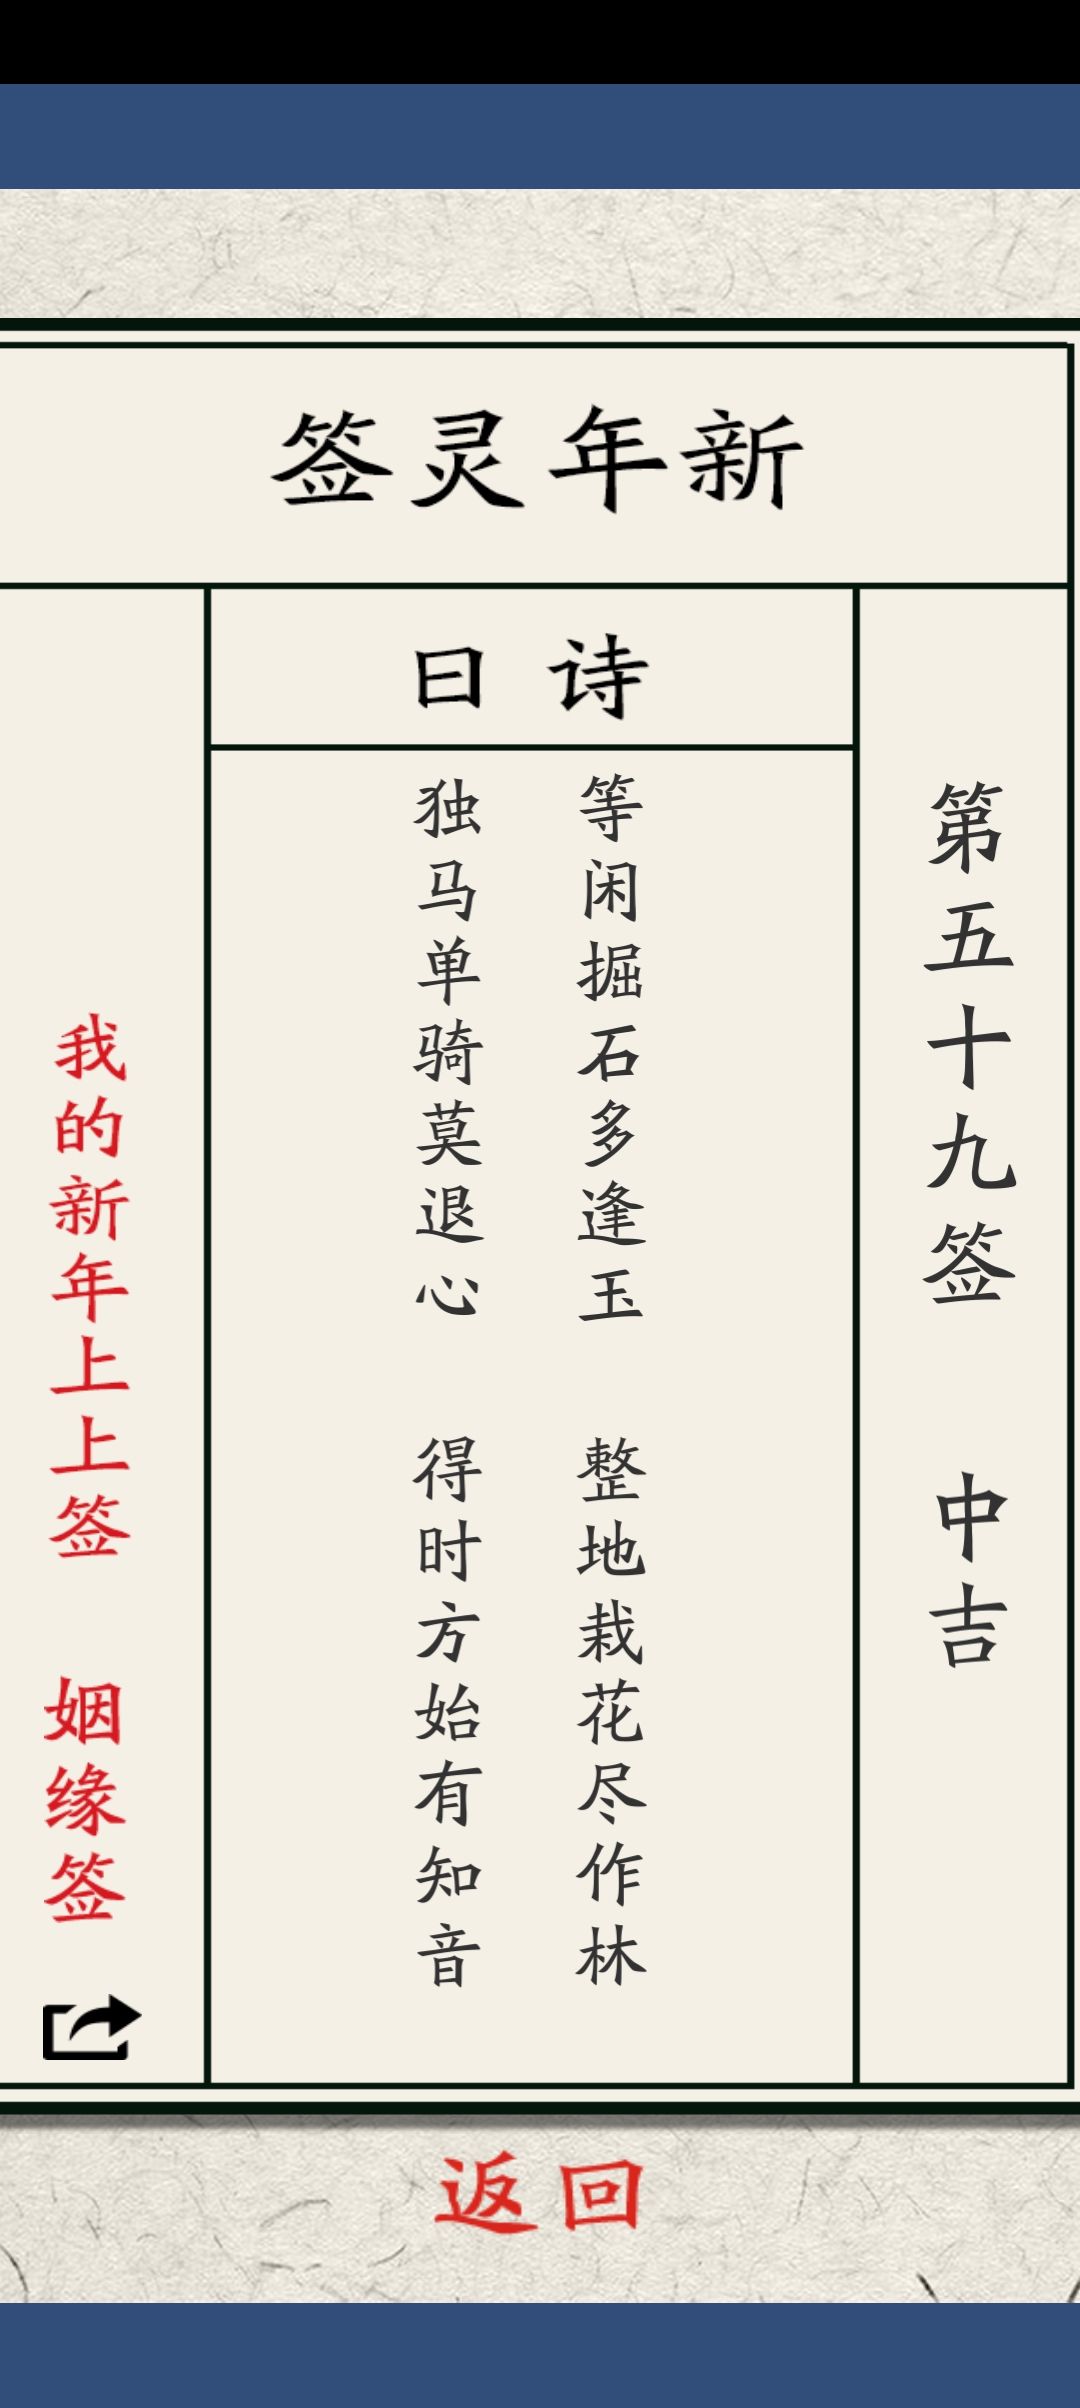 新年灵签
第五十九签 中吉
诗曰
等闲掘石多逢玉 整地栽花尽作林
独马单骑莫退心 得时方始有知音
我的新年上上签 姻缘签
返回